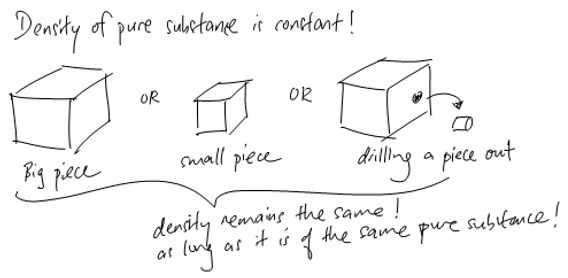 Density of pure substance is constant!
OR
OR
Big piece
small piece
drilling a piece out
density remains the same!
as long as it is of the same pure substance!